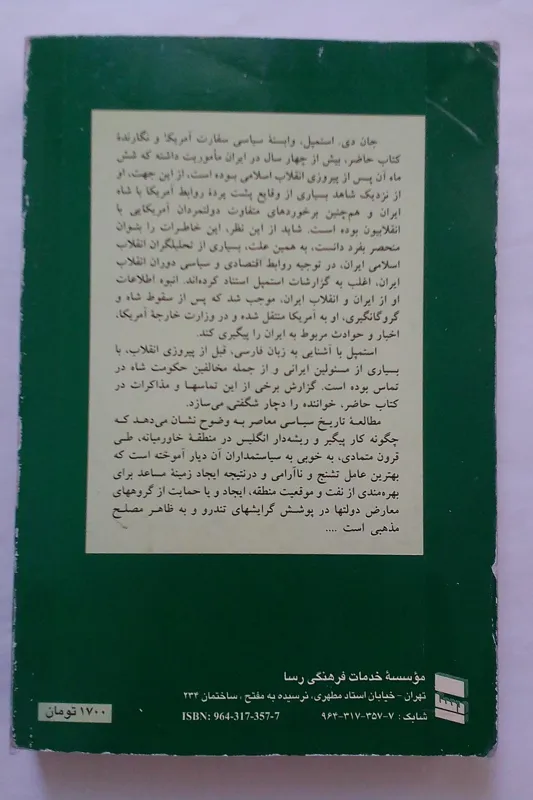 جان دی. استمپل، وابستهٔ سیاسی سفارت آمریکا و نگارندهٔ
کتاب حاضر، بیش از چهار سال در ایران مأموریت داشته که شش
ماه آن پس از پیروزی انقلاب اسلامی بوده است، از این جهت، او
از نزدیک شاهد بسیاری از وقایع پشت پردهٔ روابط آمریکا با شاه
ایران و هم‌چنین برخوردهای متفاوت دولتمردان آمریکایی با
انقلابیون بوده است. شاید از این نظر، این خاطرات را بتوان
منحصر بفرد دانست، به همین علت، بسیاری از تحلیلگران انقلاب
اسلامی ایران، در توجیه روابط اقتصادی و سیاسی دوران انقلاب
ایران، اغلب به گزارشات استمپل استناد کرده‌اند. انبوه اطلاعات
او از ایران و انقلاب ایران، موجب شد که پس از سقوط شاه و
گروگانگیری، او به آمریکا منتقل شده و در وزارت خارجهٔ آمریکا،
اخبار و حوادث مربوط به ایران را پیگیری کند.
استمپل با آشنایی به زبان فارسی، قبل از پیروزی انقلاب، با
بسیاری از مسئولین ایرانی و از جمله مخالفین حکومت شاه در
تماس بوده است. گزارش برخی از این تماسها و مذاکرات در
کتاب حاضر، خواننده را دچار شگفتی می‌سازد.
مطالعهٔ تاریخ سیاسی معاصر به وضوح نشان می‌دهد که
چگونه کار پیگیر و ریشه‌دار انگلیس در منطقهٔ خاورمیانه، طی
قرون متمادی، به خوبی به سیاستمداران آن دیار آموخته است که
بهترین عامل تشنج و ناآرامی و درنتیجه ایجاد زمینهٔ مساعد برای
بهره‌مندی از نفت و موقعیت منطقه، ایجاد و یا حمایت از گروههای
معارض دولتها در پوشش گرایشهای تندرو و به ظاهر مصلح
مذهبی است ....
مؤسسهٔ خدمات فرهنگی رسا
تهران - خیابان استاد مطهری، نرسیده به مفتح، ساختمان ۲۳۴
شابک : ۷-۳۵۷-۳۱۷-۹۶۴
ISBN: 964-317-357-7
۱۷۰۰ تومان